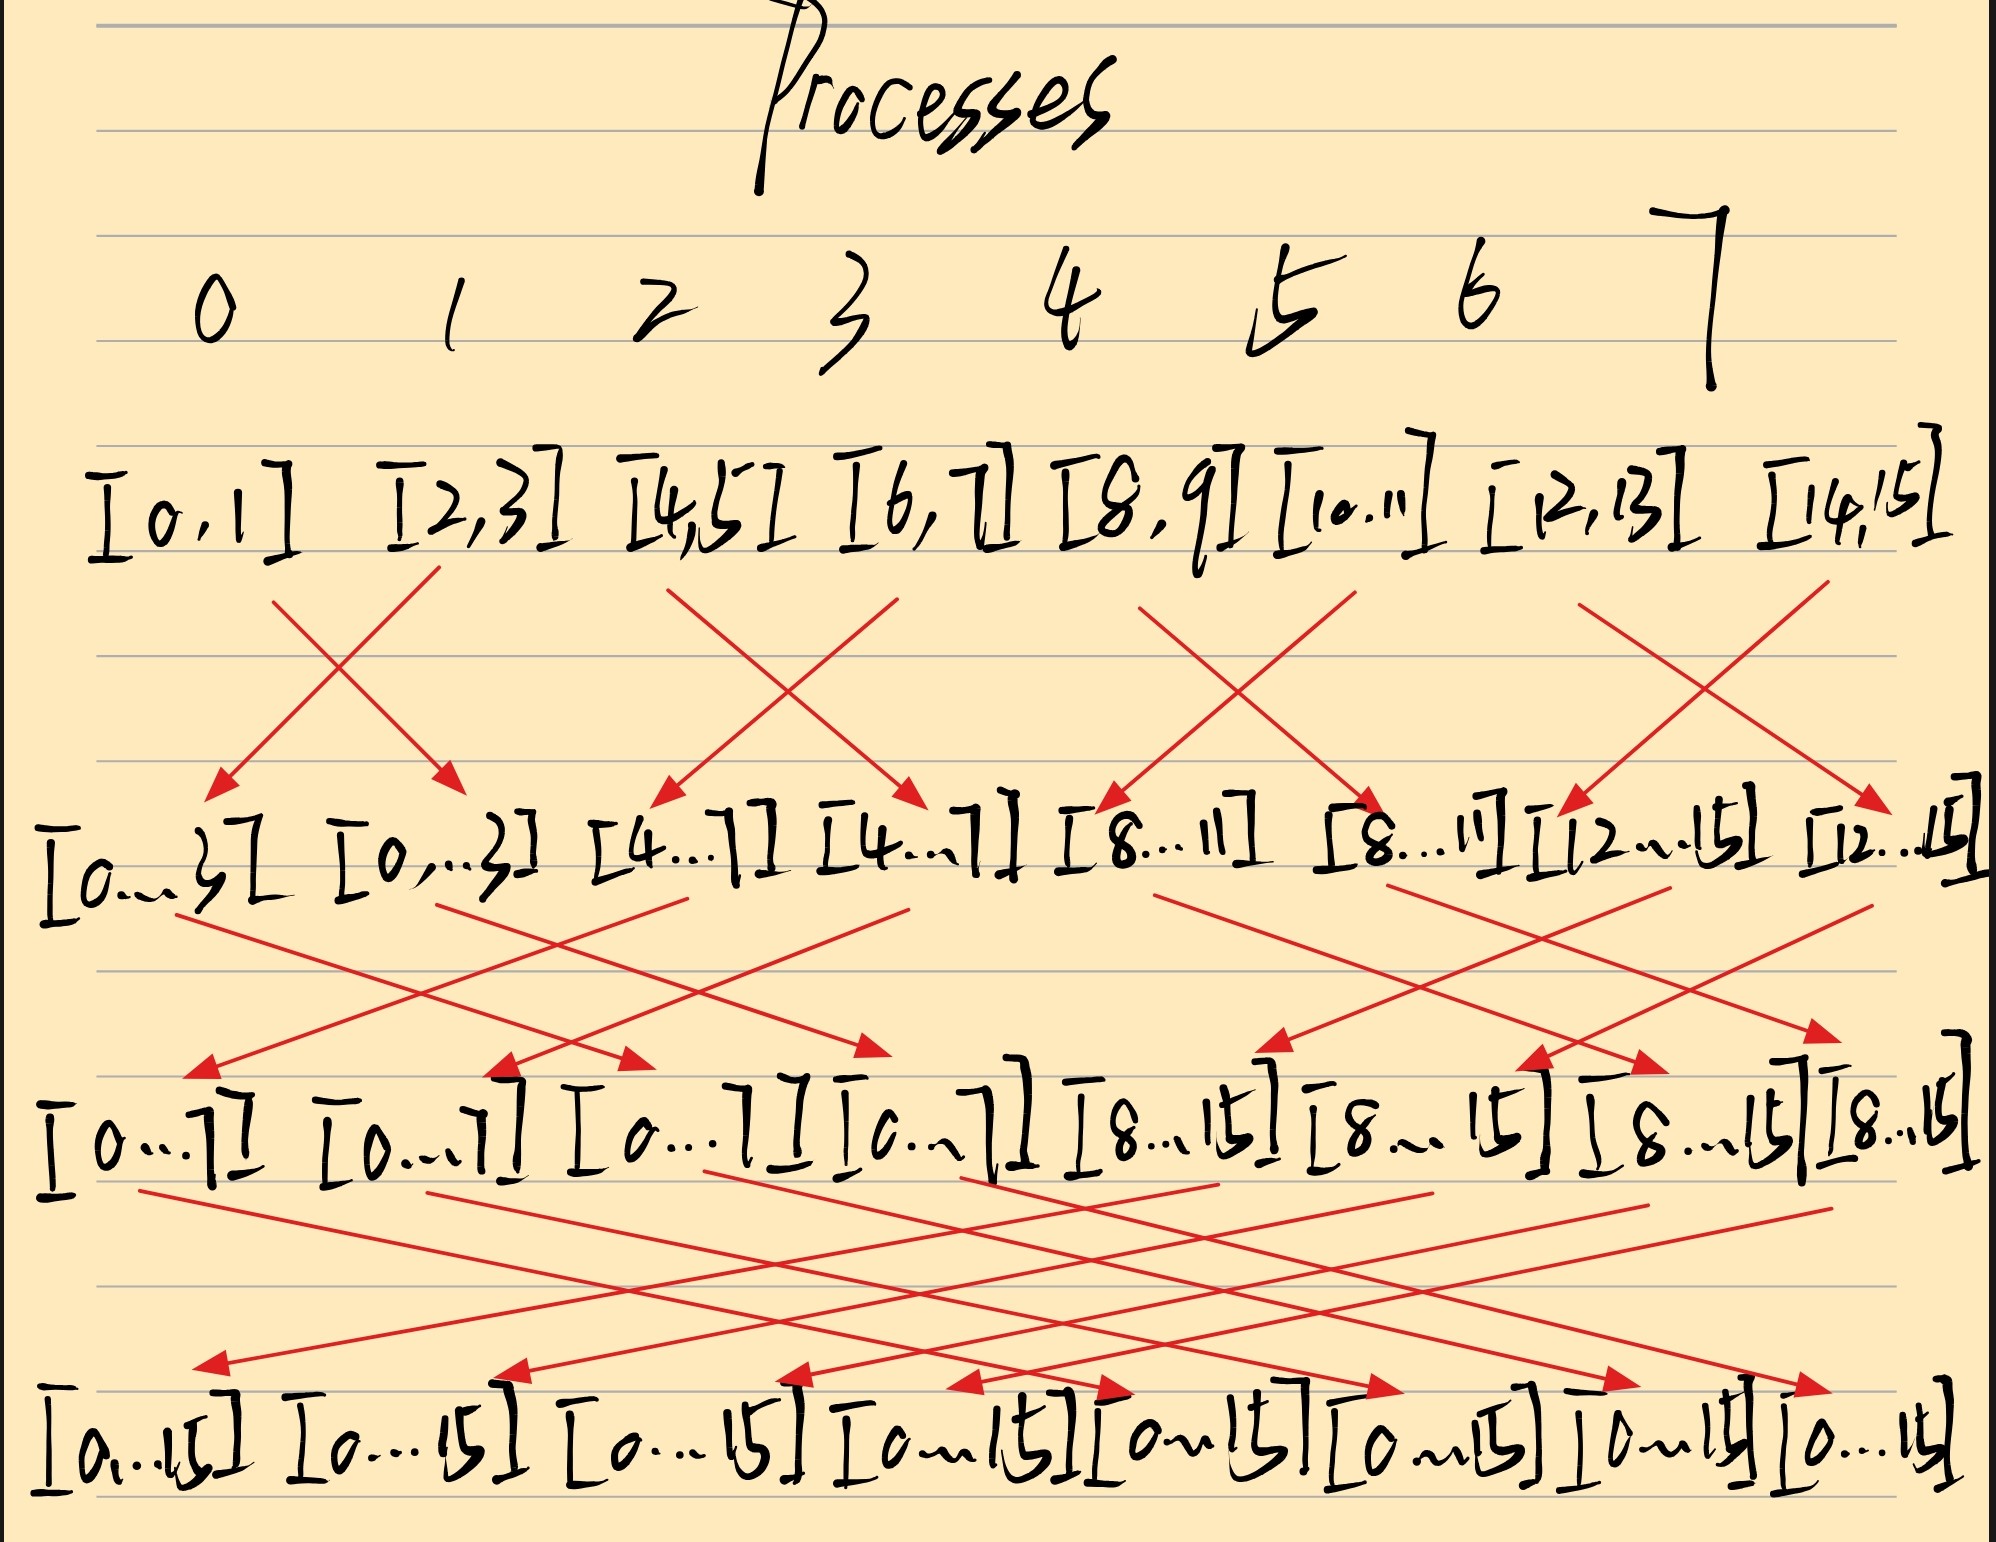 Processes
0 1 2 3 4 5 6 7
[0,1] [2,3] [4,5] [6,7] [8,9] [10.11] [12,13] [14,15]
[0...3] [0,..3] [4...7] [4...7] [8...11] [8...11] [12...15] [12...15]
[0...7] [0...7] [0...7] [0...7] [8...15] [8...15] [8...15] [8...15]
[0,..15] [0...15] [0...15] [0...15] [0...15] [0...15] [0...15] [0...15]